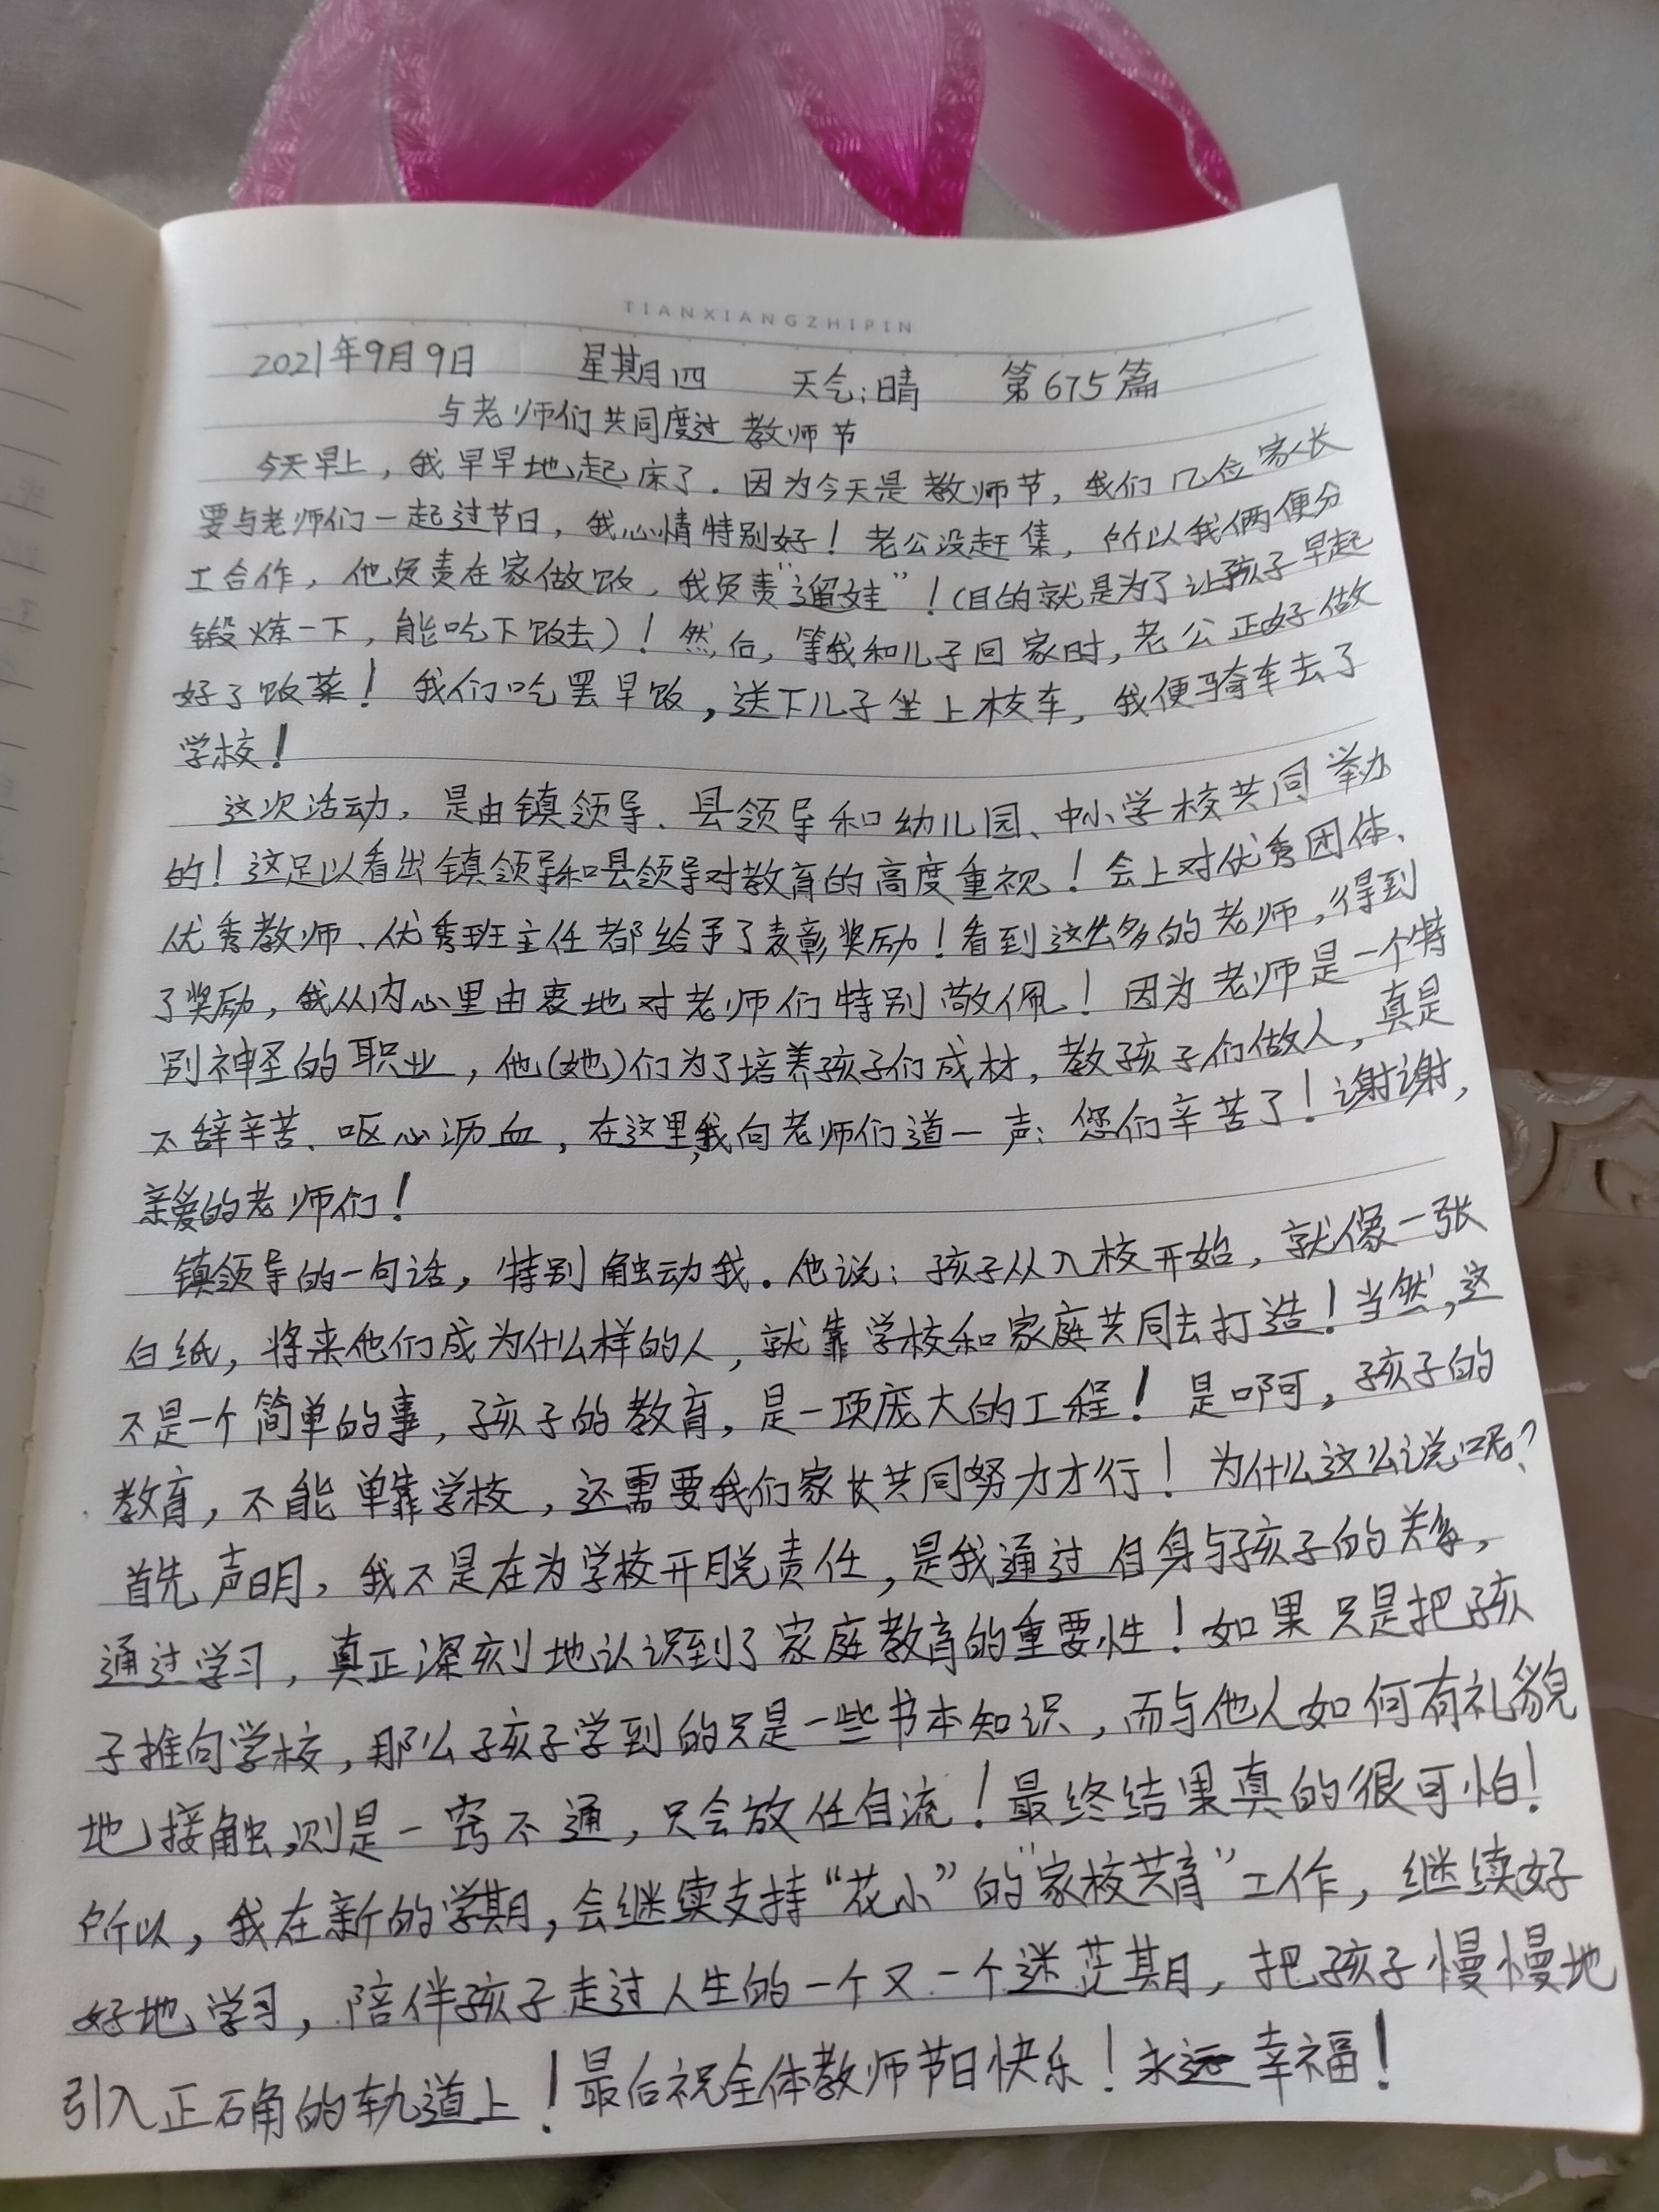 TIANXIANGZHIPIN
2021年9月9日 星期四 天气:晴 第675篇
与老师们共同度过教师节
今天早上，我早早地起床了．因为今天是教师节，我们几位家长
要与老师们一起过节日，我心情特别好！老公没赶集，所以我俩便分
工合作，他负责在家做饭，我负责“遛娃”！(目的就是为了让孩子早起
锻炼一下，能吃下饭去)！然后，等我和儿子回家时，老公正好做
好了饭菜！我们吃罢早饭，送下儿子坐上校车，我便骑车去了
学校！
这次活动，是由镇领导、县领导和幼儿园、中小学校共同举办
的！这足以看出镇领导和县领导对教育的高度重视！会上对优秀团体、
优秀教师、优秀班主任都给予了表彰奖励！看到这么多的老师，得到
了奖励，我从内心里由衷地对老师们特别敬佩！因为老师是一个特
别神圣的职业，他(她)们为了培养孩子们成材，教孩子们做人，真是
不辞辛苦、呕心沥血，在这里，我向老师们道一声：您们辛苦了！谢谢，
亲爱的老师们！
镇领导的一句话，特别触动我。他说：孩子从入校开始，就像一张
白纸，将来他们成为什么样的人，就靠学校和家庭共同去打造！当然，这
不是一个简单的事，孩子的教育，是一项庞大的工程！是啊，孩子的
教育，不能单靠学校，还需要我们家长共同努力才行！为什么这么说呢？
首先声明，我不是在为学校开脱责任，是我通过自身与孩子的关系，
通过学习，真正深刻地认识到了家庭教育的重要性！如果只是把孩
子推向学校，那么孩子学到的只是一些书本知识，而与他人如何有礼貌
地接触，则是一窍不通，只会放任自流！最终结果真的很可怕！
所以，我在新的学期，会继续支持“花小”的“家校共育”工作，继续好
好地学习，陪伴孩子走过人生的一个又一个迷茫期，把孩子慢慢地
引入正确的轨道上！最后祝全体教师节日快乐！永远幸福！